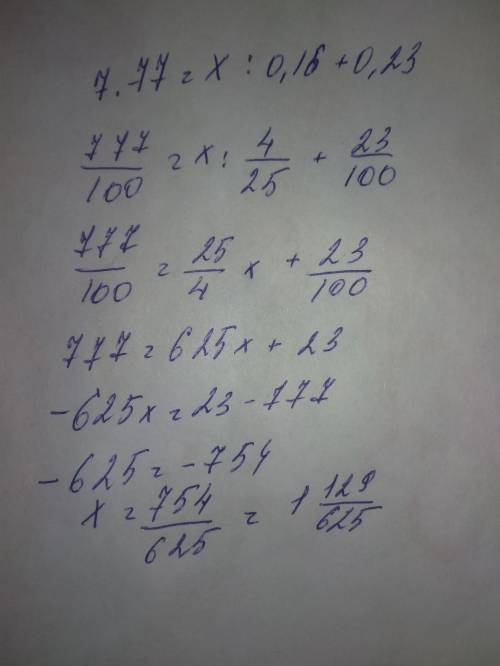 7.77 = x : 0,16 + 0,23
777/100 = x : 4/25 + 23/100
777/100 = 25/4 x + 23/100
777 = 625x + 23
-625x = 23 - 777
-625 = -754
x = 754/625 = 1 129/625